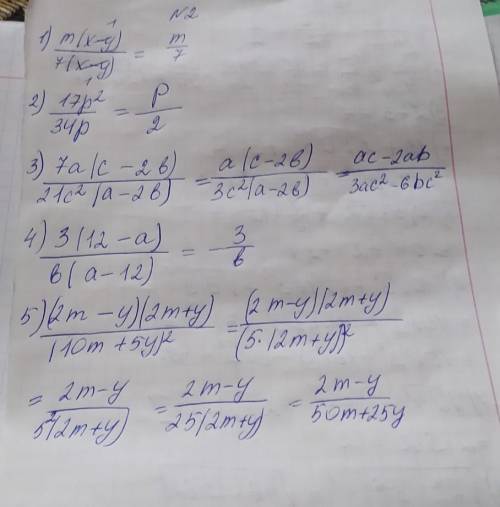 N2
1) m(x-y) / 7(x-y) = m / 7
2) 17p² / 34p = p / 2
3) 7a(c-2b) / 21c²(a-2b) = a(c-2b) / 3c²(a-2b) = ac-2ab / 3ac²-6bc²
4) 3(12-a) / b(a-12) = 3 / b
5) (2m-y)(2m+y) / (10m+5y)² = (2m-y)(2m+y) / (5·(2m+y))²
= 2m-y / 5²(2m+y) = 2m-y / 25(2m+y) = 2m-y / 50m+25y